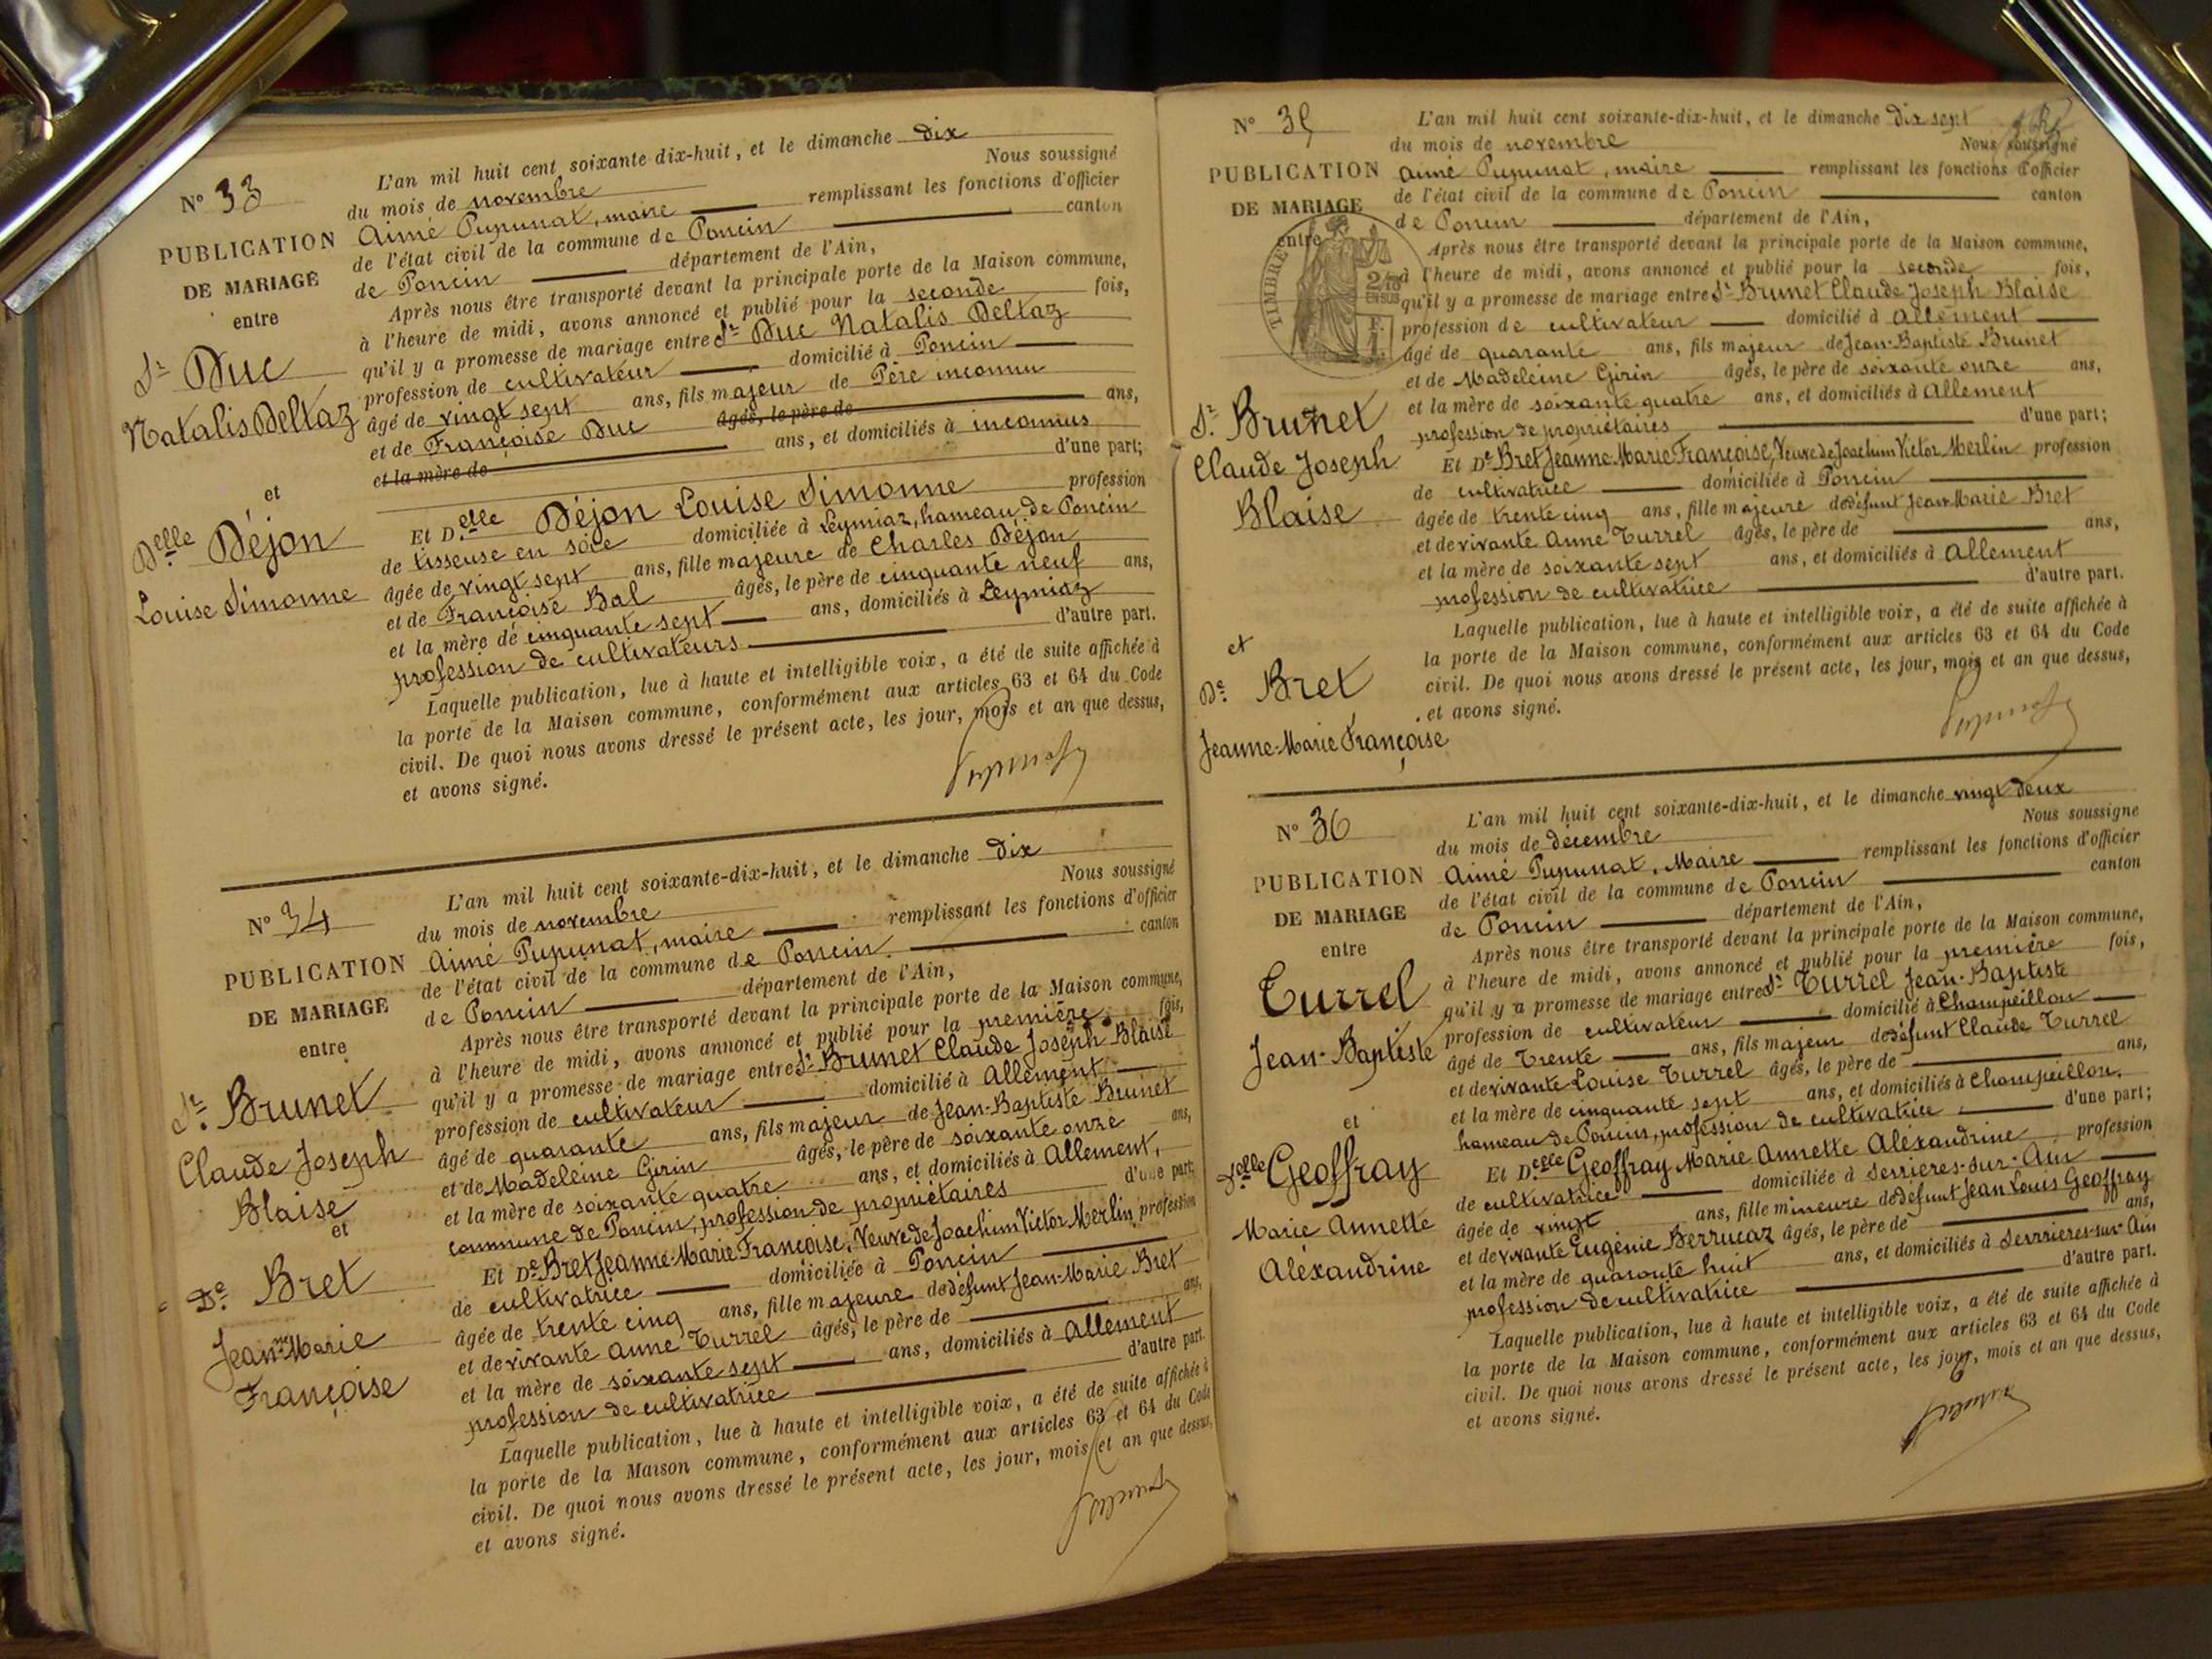 N° 33
PUBLICATION
DE MARIAGE
entre
Sr Duc
Natalis Deltaz
et
Delle Déjon
Louise Simonne
L'an mil huit cent soixante-dix-huit, et le dimanche dix
du mois de novembre Nous soussigné
Aimé Pupunat, maire remplissant les fonctions d'officier
de l'état civil de la commune de Poncin canton
de Poncin département de l'Ain,
Après nous être transporté devant la principale porte de la Maison commune,
à l'heure de midi, avons annoncé et publié pour la seconde fois,
qu'il y a promesse de mariage entre Sr Duc Natalis Deltaz
profession de cultivateur domicilié à Poncin
âgé de vingt sept ans, fils majeur de Père inconnu
et de Françoise Duc âgés, le père de ans,
et la mère de ans, et domiciliés à inconnus
d'une part;
Et Delle Déjon Louise Simonne profession
de tisseuse en soie domiciliée à Leymiaz, hameau de Poncin
âgée de vingt sept ans, fille majeure de Charles Déjon
et de Françoise Bal âgés, le père de cinquante neuf ans,
et la mère de cinquante sept ans, domiciliés à Leymiaz
profession de cultivateurs d'autre part.
Laquelle publication, lue à haute et intelligible voix, a été de suite affichée à
la porte de la Maison commune, conformément aux articles 63 et 64 du Code
civil. De quoi nous avons dressé le présent acte, les jour, mois et an que dessus,
et avons signé.
Pupunat
N° 34
PUBLICATION
DE MARIAGE
entre
Sr Brunet
Claude Joseph
Blaise
et
De Bret
Jeanne Marie
Françoise
L'an mil huit cent soixante-dix-huit, et le dimanche dix
du mois de novembre Nous soussigné
Aimé Pupunat, maire remplissant les fonctions d'officier
de l'état civil de la commune de Poncin canton
de Poncin département de l'Ain,
Après nous être transporté devant la principale porte de la Maison commune,
à l'heure de midi, avons annoncé et publié pour la première fois,
qu'il y a promesse de mariage entre Sr Brunet Claude Joseph Blaise
profession de cultivateur domicilié à Allement
âgé de quarante ans, fils majeur de Jean-Baptiste Brunet
et de Madeleine Girin âgés, le père de soixante onze ans,
et la mère de soixante quatre ans, et domiciliés à Allement,
commune de Poncin, profession de propriétaires d'une part;
Et De Bret Jeanne-Marie Françoise, Veuve de Joachim Victor Merlin profession
de cultivatrice domiciliée à Poncin
âgée de trente cinq ans, fille majeure de défunt Jean-Marie Bret
et de vivante Anne Turrel âgés, le père de ans,
et la mère de soixante sept ans, domiciliés à Allement
profession de cultivatrice d'autre part.
Laquelle publication, lue à haute et intelligible voix, a été de suite affichée à
la porte de la Maison commune, conformément aux articles 63 et 64 du Code
civil. De quoi nous avons dressé le présent acte, les jour, mois et an que dessus,
et avons signé.
Pupunat
N° 35
PUBLICATION
DE MARIAGE
entre
TIMBRE
Sr Brunet
Claude Joseph
Blaise
et
De Bret
Jeanne-Marie Françoise
L'an mil huit cent soixante-dix-huit, et le dimanche dix sept
du mois de novembre Nous soussigné
Aimé Pupunat, maire remplissant les fonctions d'officier
de l'état civil de la commune de Poncin canton
de Poncin département de l'Ain,
Après nous être transporté devant la principale porte de la Maison commune,
à l'heure de midi, avons annoncé et publié pour la seconde fois,
qu'il y a promesse de mariage entre Sr Brunet Claude Joseph Blaise
profession de cultivateur domicilié à Allement
âgé de quarante ans, fils majeur de Jean-Baptiste Brunet
et de Madeleine Girin âgés, le père de soixante onze ans,
et la mère de soixante quatre ans, et domiciliés à Allement
profession de propriétaires d'une part;
Et De Bret Jeanne-Marie Françoise, Veuve de Joachim Victor Merlin profession
de cultivatrice domiciliée à Poncin
âgée de trente cinq ans, fille majeure de défunt Jean-Marie Bret
et de vivante Anne Turrel âgés, le père de ans,
et la mère de soixante sept ans, et domiciliés à Allement
profession de cultivatrice d'autre part.
Laquelle publication, lue à haute et intelligible voix, a été de suite affichée à
la porte de la Maison commune, conformément aux articles 63 et 64 du Code
civil. De quoi nous avons dressé le présent acte, les jour, mois et an que dessus,
et avons signé.
Pupunat
N° 36
PUBLICATION
DE MARIAGE
entre
Turrel
Jean-Baptiste
et
Delle Geoffray
Marie Annette
Aléxandrine
L'an mil huit cent soixante-dix-huit, et le dimanche vingt deux
du mois de décembre Nous soussigné
Aimé Pupunat, Maire remplissant les fonctions d'officier
de l'état civil de la commune de Poncin canton
de Poncin département de l'Ain,
Après nous être transporté devant la principale porte de la Maison commune,
à l'heure de midi, avons annoncé et publié pour la première fois,
qu'il y a promesse de mariage entre Sr Turrel Jean-Baptiste
profession de cultivateur domicilié à Champeillon
âgé de Trente ans, fils majeur de défunt Claude Turrel
et de vivante Louise Turrel âgés, le père de ans,
et la mère de cinquante sept ans, et domiciliés à Champeillon,
hameau de Poncin, profession de cultivatrice d'une part;
Et Delle Geoffray Marie Annette Aléxandrine profession
de cultivatrice domiciliée à Serrières-sur-Ain
âgée de vingt ans, fille mineure de défunt Jean Louis Geoffray
et de vivante Eugénie Berrucaz âgés, le père de ans,
et la mère de quarante huit ans, et domiciliés à Serrières-sur-Ain
profession de cultivatrice d'autre part.
Laquelle publication, lue à haute et intelligible voix, a été de suite affichée à
la porte de la Maison commune, conformément aux articles 63 et 64 du Code
civil. De quoi nous avons dressé le présent acte, les jour, mois et an que dessus,
et avons signé.
Pupunat